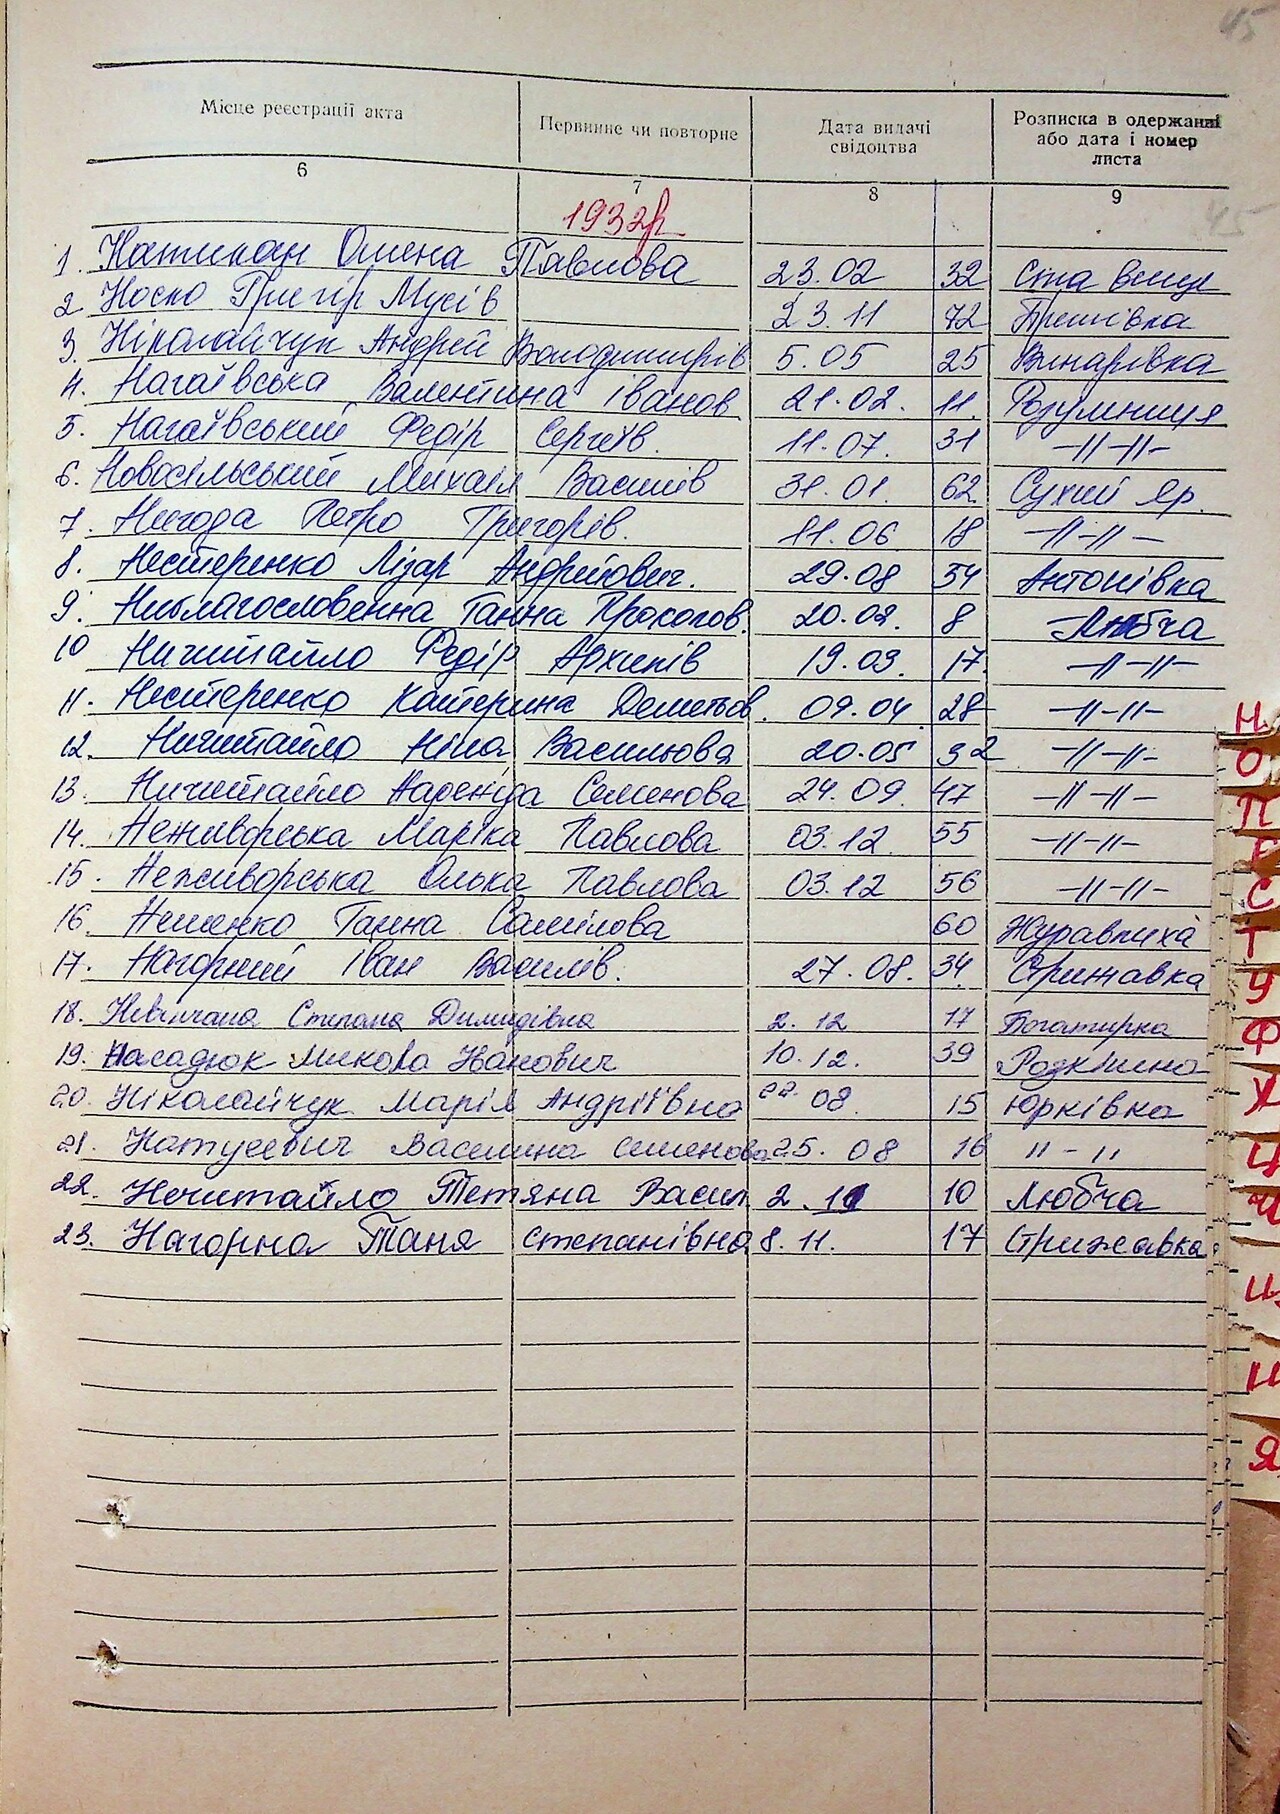 45
Місце реєстрації акта Первинне чи повторне Дата видачі свідоцтва Розписка в одержанні або дата і номер листа
6 7 8 9
1932р 45
1. Натикан Олена Павлова 23.02 32
2. Носко Григір Мусів 23.11 72
3. Ніколайчук Андрей Володимирів 5.05 25 Винарівка
4. Нагаївська Валентина Іванов 21.02. 11. Розумниця
5. Нагаївський Федір Сергеїв. 11.07. 31 -//-//-
6. Новосільський Михаіл Василів 31.01. 62 Сухий Яр.
7. Нигода Петро Григорів. 11.06 18 -//-//-
8. Нестеренко Лізар Андрійович. 29.08 54 Антонівка
9. Ниблагословенна Ганна Прокопов. 20.02. 8 Любча
10 Ничитайло Федір Архипів 19.03. 17. -//-//-
11. Нестеренко Катерина Дементьов. 09.04. 28 -//-//-
12. Ничитайло Ніна Васильова 20.05 32 -//-//-
13. Ничитайло Семенова 24.09. 47 -//-//-
14. Неживорська Маріка Павлова 03.12. 55 -//-//-
15. Неживорська Олька Павлова 03.12 56 -//-//-
16. Неменко Ганна Самілова 60 Журавлиха
17. Нагорний Іван Василів. 27.08. 34. Стрижавка
18. Невінчана Степана Димидівна 2.12 17 Богатирка
19. Насадюк Микола Іванович 10.12. 39 Розкішна
20. Ніколайчук Марія Андріївна 22.08. 15 Юрківка
21. Натусевич Василина Семенова 25.08 16 "-"
22. Нечитайло Тетяна Васил. 2.11 10 Любча
23. Нагорна Таня Степанівна 8.11. 17 Стрижавка
Н
О
П
Р
С
Т
У
Ф
Х
Ц
Ч
Я